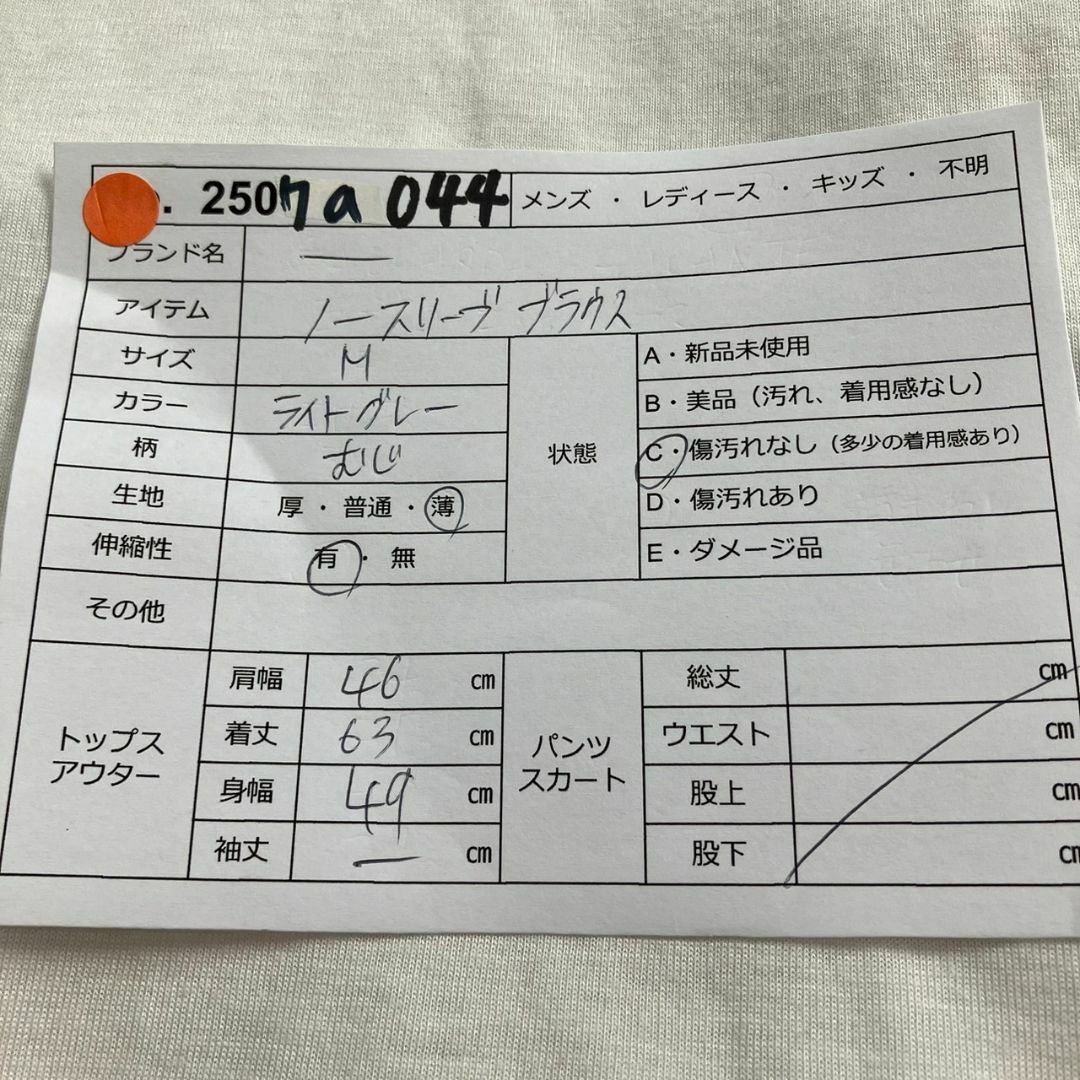 . 2507a044 メンズ ・ レディース ・ キッズ ・ 不明
ブランド名 —
アイテム ノースリーヴ ブラウス
サイズ M
カラー ライトグレー
柄 むじ
生地 厚 ・ 普通 ・ 薄
伸縮性 有 ・ 無
状態
A・新品未使用
B・美品（汚れ、着用感なし）
C・傷汚れなし（多少の着用感あり）
D・傷汚れあり
E・ダメージ品
その他
トップス
アウター
肩幅 46 cm
着丈 63 cm
身幅 49 cm
袖丈 — cm
パンツ
スカート
総丈 cm
ウエスト cm
股上 cm
股下 cm